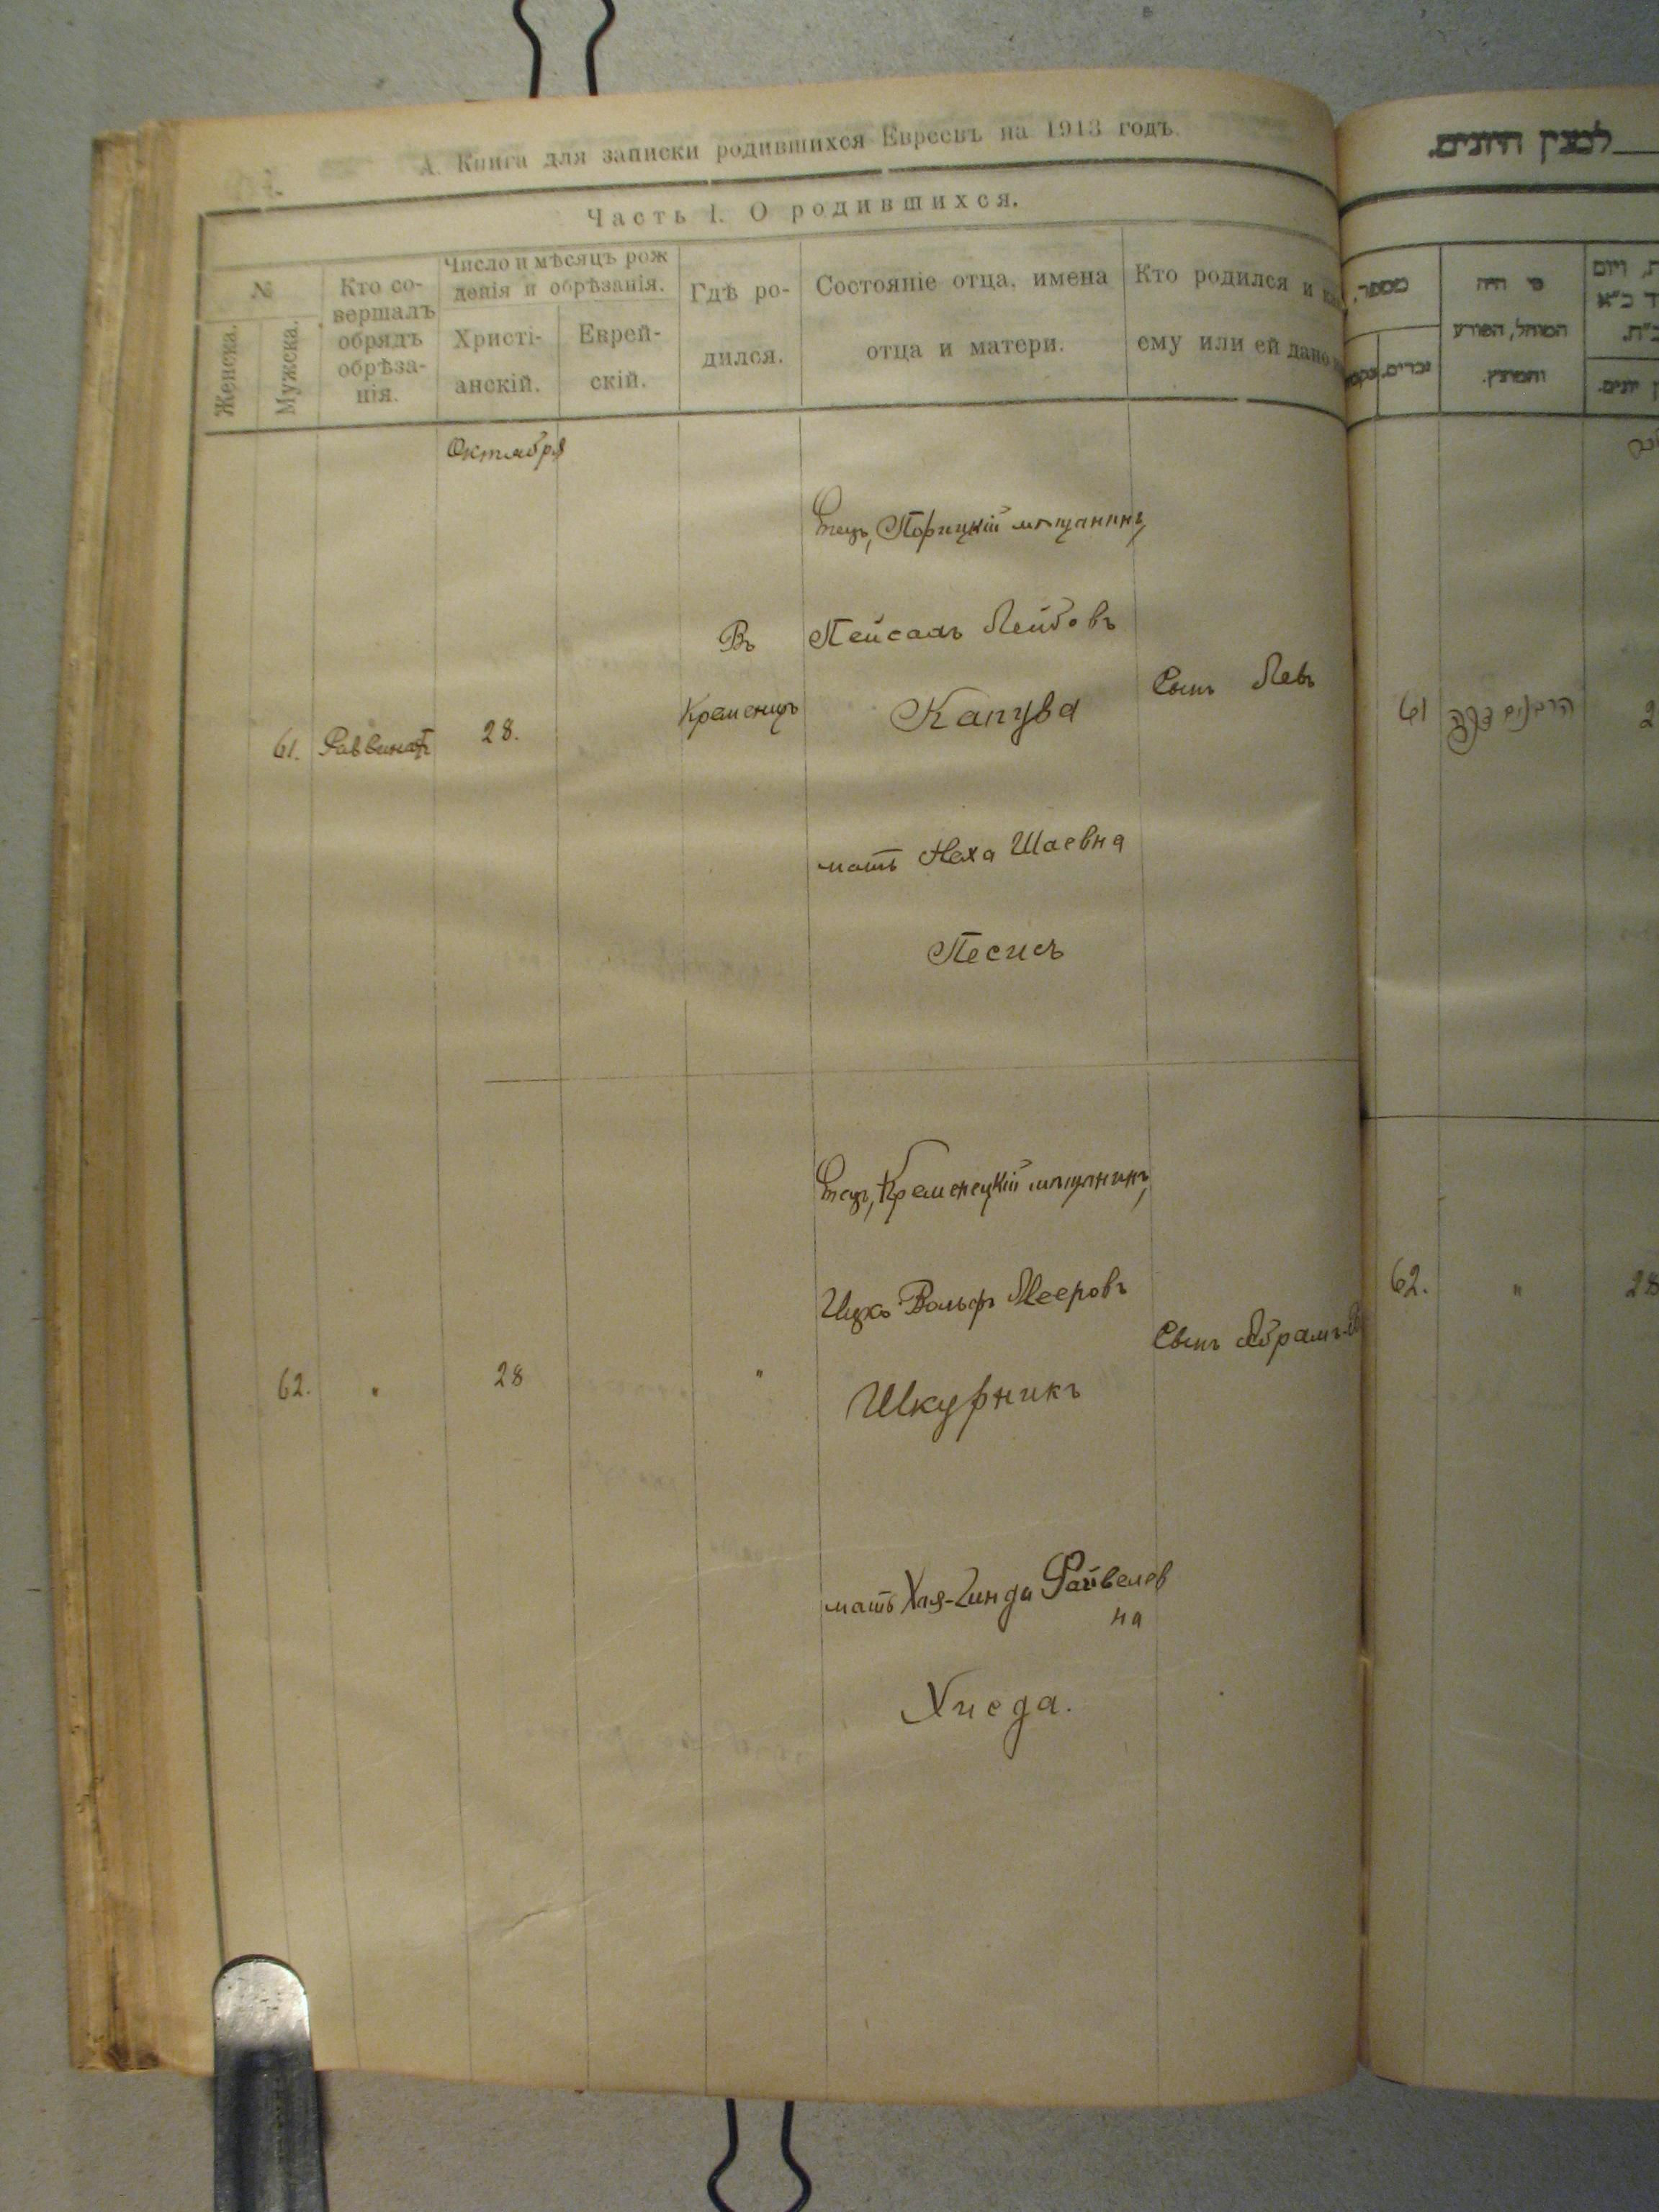 А. Книга для записки родившихся Евреевъ на 1913 годъ.
Часть I. О родившихся.
№
Женска.
Мужска.
Кто со-
вершалъ
обрядъ
обрѣза-
нія.
Число и мѣсяцъ рож
денія и обрѣзанія.
Христі-
анскій.
Еврей-
скій.
Гдѣ ро-
дился.
Состояніе отца, имена
отца и матери.
Кто родился и
ему или ей дано
Октября
61.
Раввинатъ
28.
Въ
Кременцѣ
Отецъ, Порицкій мѣщанинъ,
Пейсахъ Лейбовъ
Капува
мать Неха Шаевна
Песисъ
Сынъ Левъ
62.
"
28
"
Отецъ, Кременецкій мѣщанинъ,
Ицко Вольфъ Мееровъ
Шкурникъ
мать Хая-Зинда Файвелев
на
Хиеда.
Сынъ Абрамъ
למנין היונים.
מספר.
נכרים.
מי היה
המוהל, הפורע
והמוצץ.
61
62.
"
28